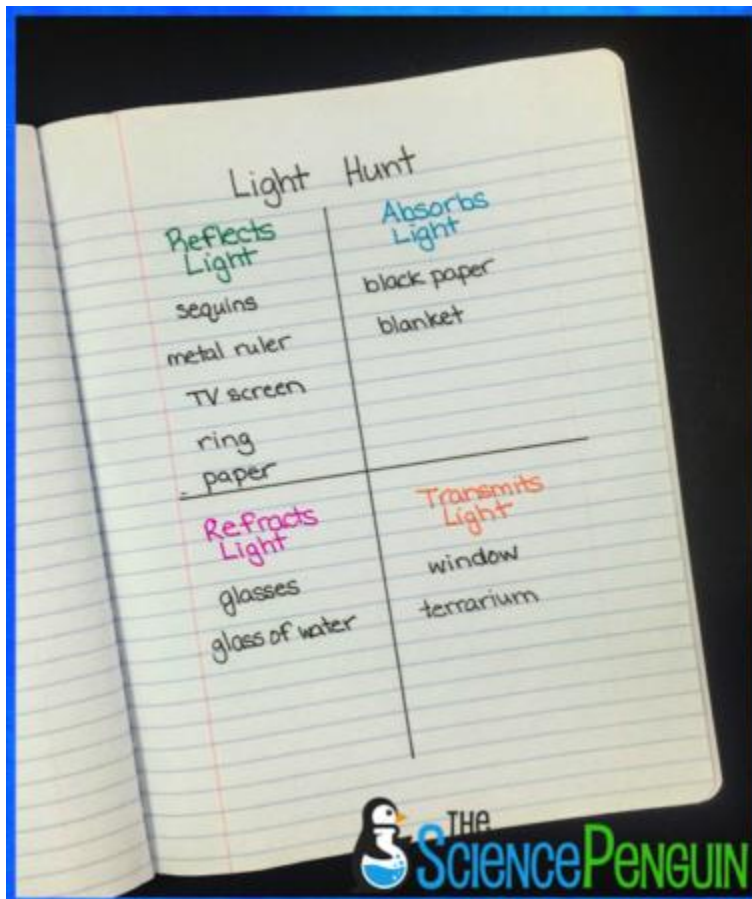 Light Hunt
Reflects
Light
sequins
metal ruler
TV screen
ring
paper
Absorbs
Light
black paper
blanket
Refracts
Light
glasses
glass of water
Transmits
Light
window
terrarium
THE
SCIENCEPENGUIN